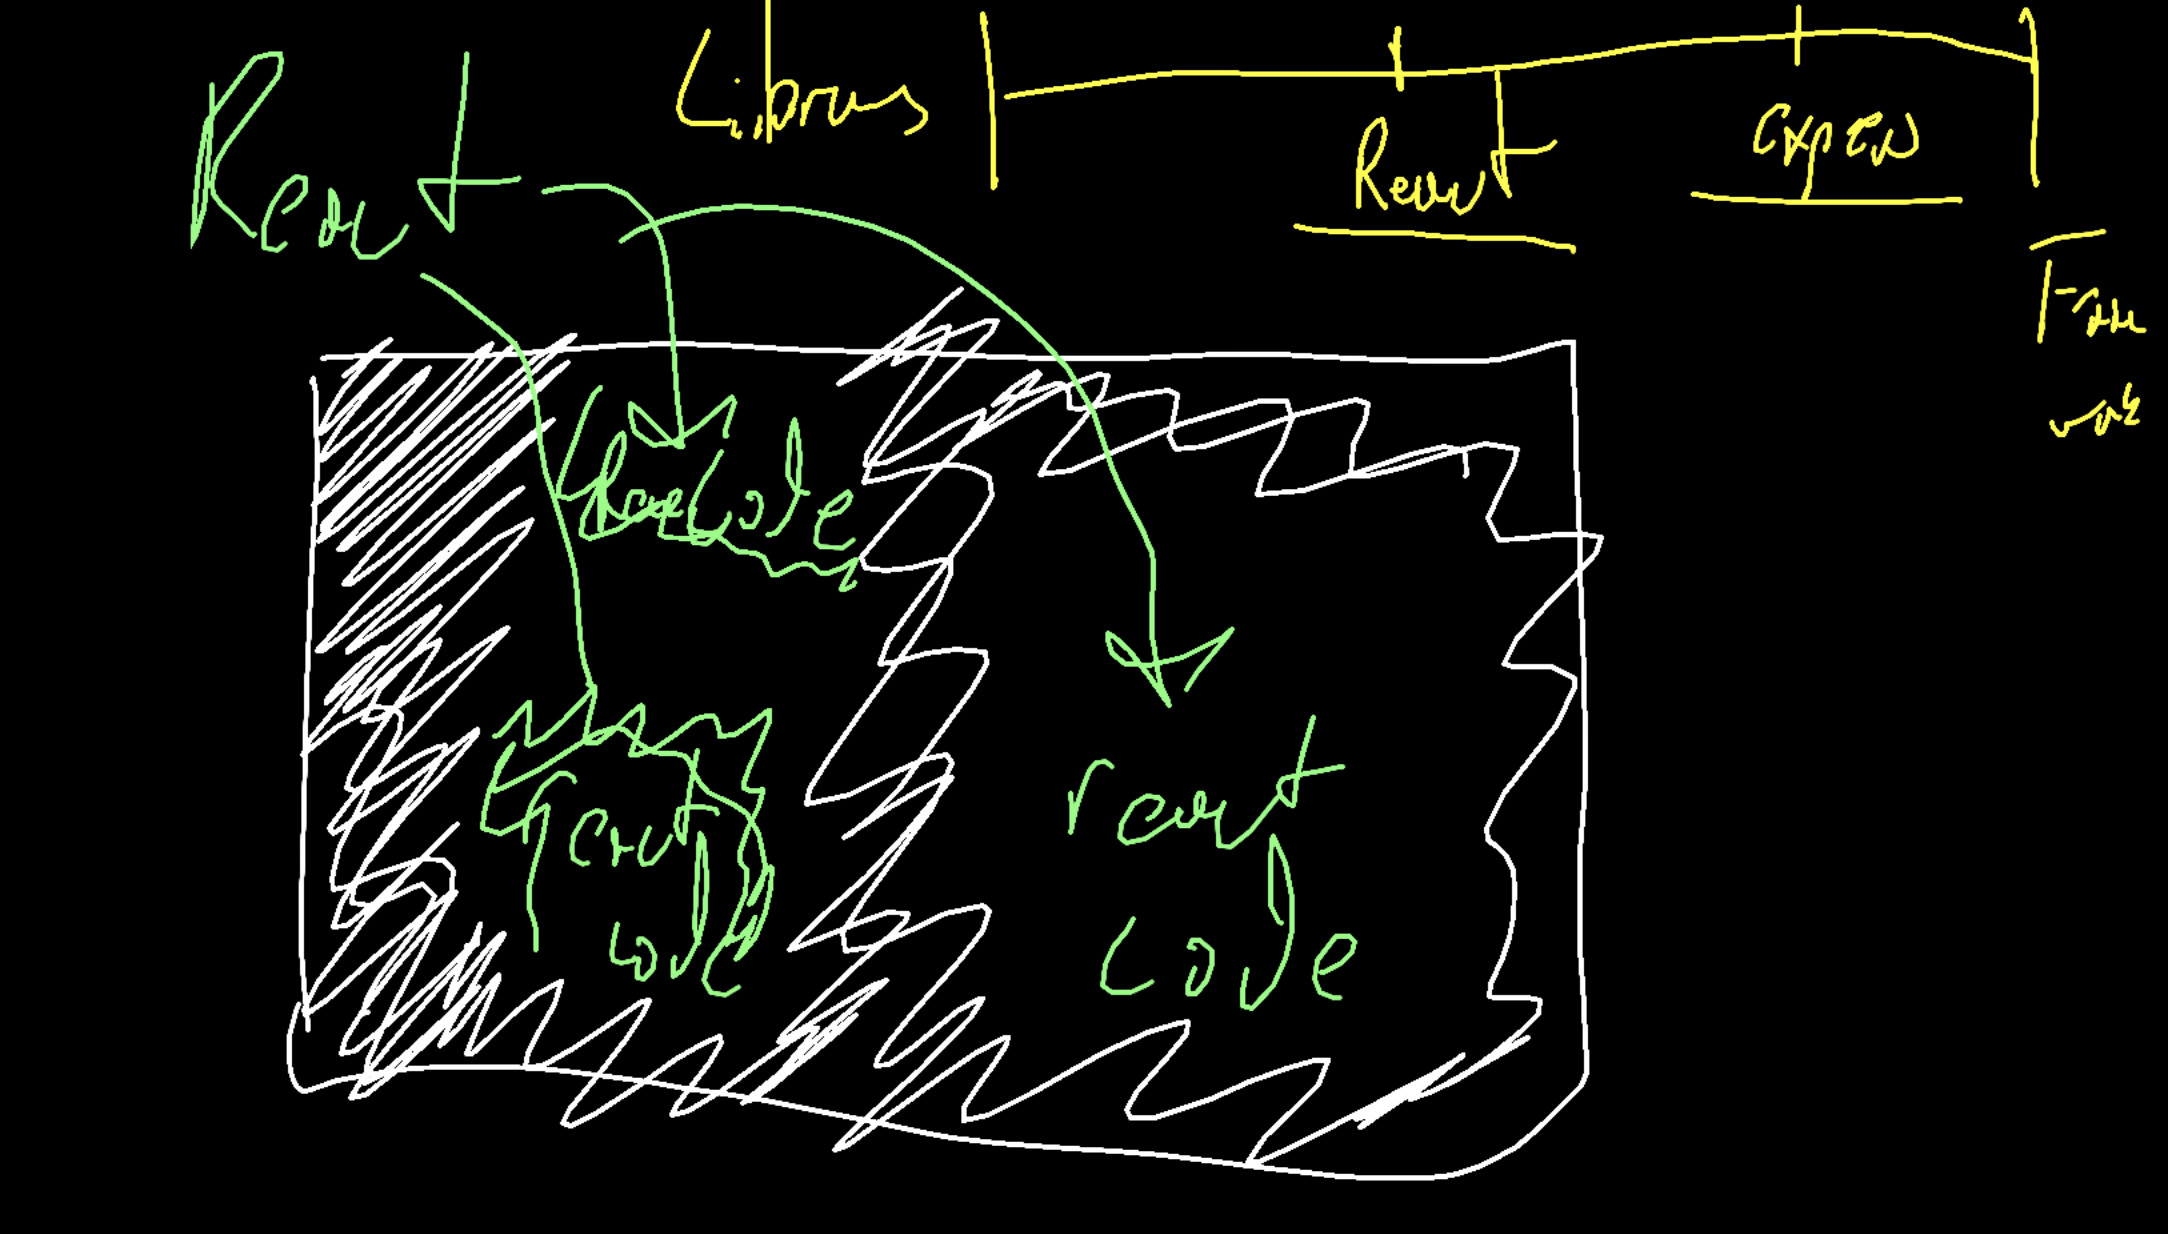 React
Library
React
Expo
Frame
work
React Code
React
code
react
code